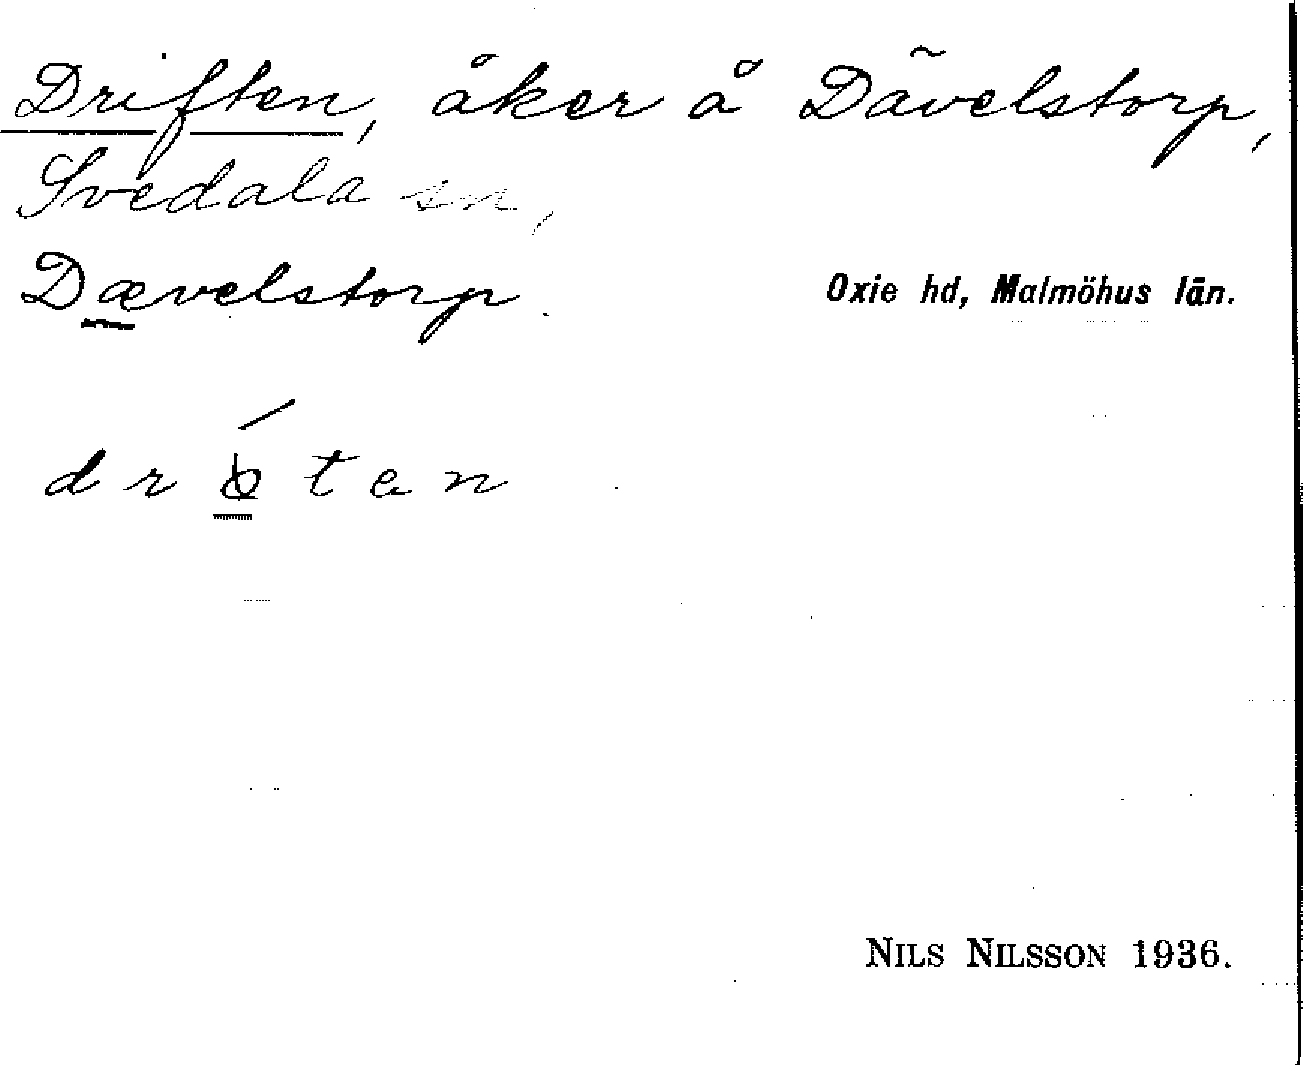 Driften, åker å Dävelstorp,
Svedala sn,
Dævelstorp. Oxie hd, Malmöhus län.
NILS NILSSON 1936.